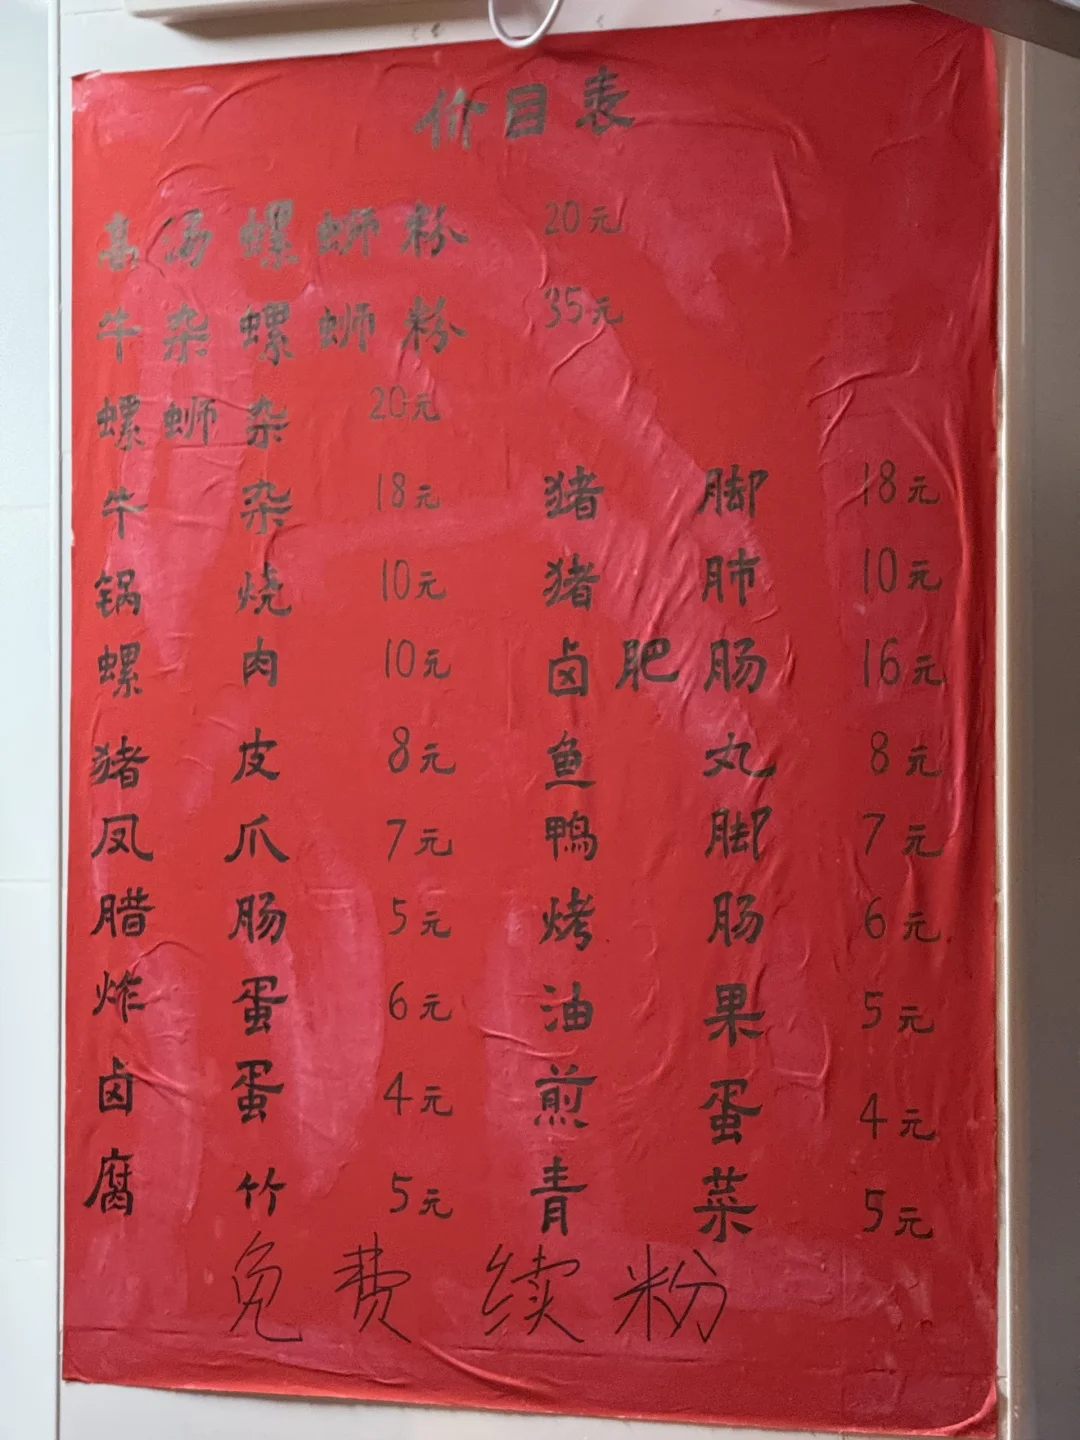 价目表
高汤螺蛳粉 20元
牛杂螺蛳粉 35元
螺蛳杂 20元
牛杂 18元 猪脚 18元
锅烧 10元 猪肺 10元
螺肉 10元 卤肥肠 16元
猪皮 8元 鱼丸 8元
凤爪 7元 鸭脚 7元
腊肠 5元 烤肠 6元
炸蛋 6元 油果 5元
卤蛋 4元 煎蛋 4元
腐竹 5元 青菜 5元
免费续粉